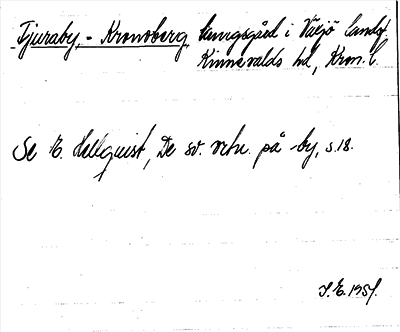 Tjuraby, - Kronoberg, kungsgård i Växjö landsf.
Kinnevalds hd, Kron. l.
Se E. Hellquist, De sv. ortn. på -by, s. 18.
S.E. 1951.